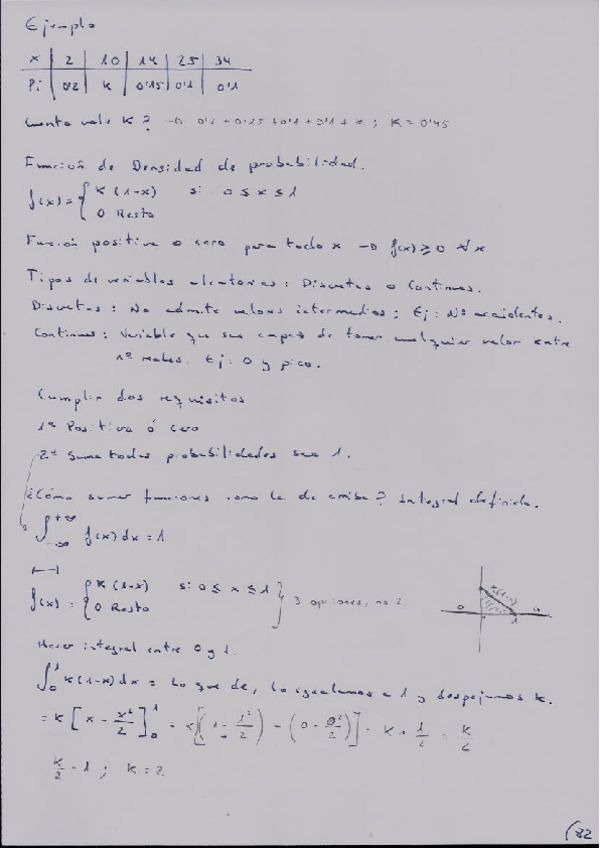 Ejemplo
x | 2 | 10 | 14 | 25 | 34
Pi | 0'2 | K | 0'15 | 0'1 | 0'1
Cuanto vale K? → 0'2 + 0'15 + 0'1 + 0'1 + ; K = 0'45
Función de Densidad de probabilidad.
f(x) = { K (1-x) si 0 ≤ x ≤ 1
0 Resto
Función positiva o cero para todo x → f(x) ≥ 0 ∀x
Tipos de variables aleatorias: Discretas o Continuas.
Discretas: No admite valores intermedios; Ej: Nº accidentes.
Continuas: Variable que sea capaz de tomar cualquier valor entre
nº reales. Ej: 0 y pico.
Cumplir dos requisitos
1º Positiva ó cero
2º Suma todas probabilidades sea 1.
¿Cómo sumar funciones como la de arriba? Integral definida.
∫-∞ +∞ f(x) dx = 1
f(x) = { K (1-x) si 0 ≤ x ≤ 1
0 Resto } 3 opciones, no 2.
K(1-x)
0 1 0
Hacer integral entre 0 y 1.
∫0 1 K(1-x) dx = Lo que de, lo igualamos a 1 y despejamos K.
= K [x - x²/2]0 1 = K [(1 - 1²/2) - (0 - 0²/2)] = K · 1/2 = K/2
K/2 = 1 ; K = 2
(82